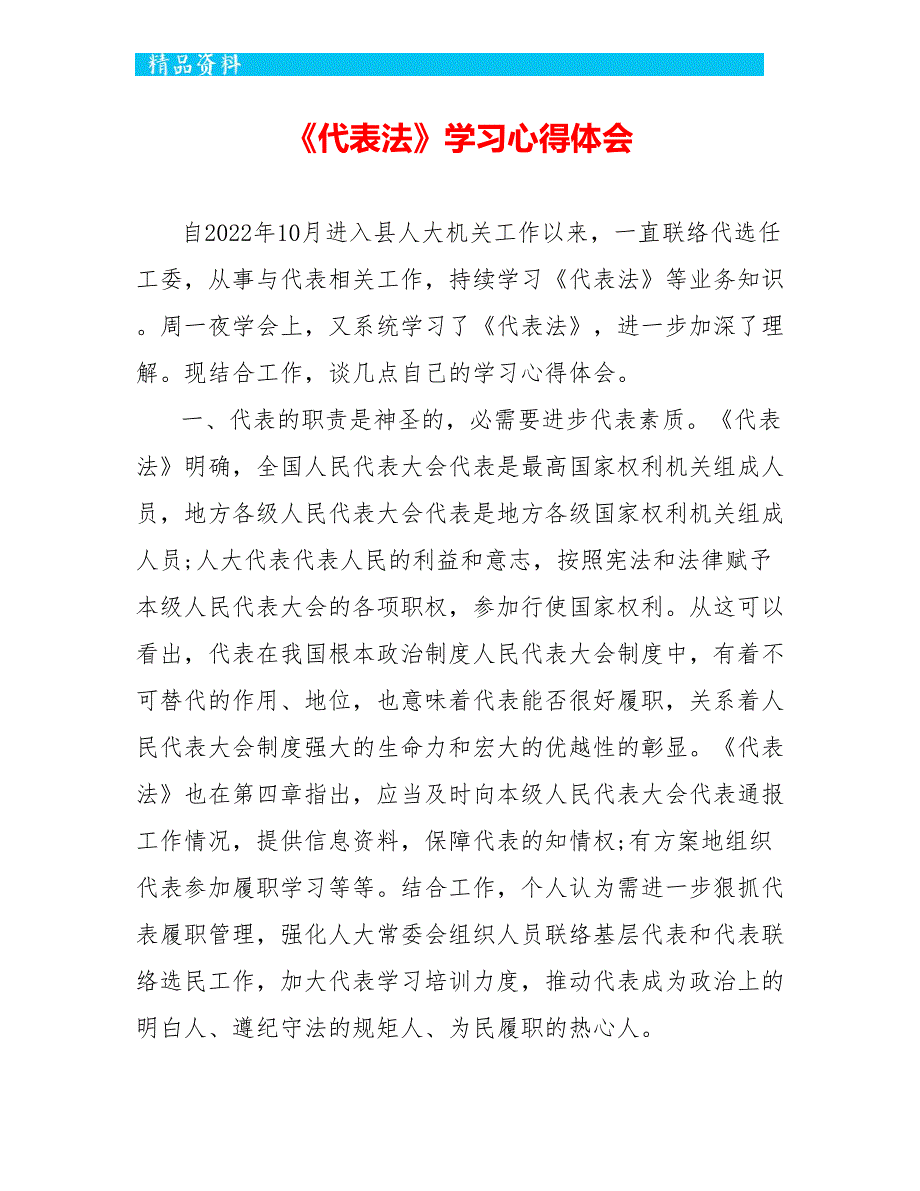 精品资料
《代表法》学习心得体会
自2022年10月进入县人大机关工作以来，一直联络代选任
工委，从事与代表相关工作，持续学习《代表法》等业务知识
。周一夜学会上，又系统学习了《代表法》，进一步加深了理
解。现结合工作，谈几点自己的学习心得体会。
一、代表的职责是神圣的，必需要进步代表素质。《代表
法》明确，全国人民代表大会代表是最高国家权利机关组成人
员，地方各级人民代表大会代表是地方各级国家权利机关组成
人员;人大代表代表人民的利益和意志，按照宪法和法律赋予
本级人民代表大会的各项职权，参加行使国家权利。从这可以
看出，代表在我国根本政治制度人民代表大会制度中，有着不
可替代的作用、地位，也意味着代表能否很好履职，关系着人
民代表大会制度强大的生命力和宏大的优越性的彰显。《代表
法》也在第四章指出，应当及时向本级人民代表大会代表通报
工作情况，提供信息资料，保障代表的知情权;有方案地组织
代表参加履职学习等等。结合工作，个人认为需进一步狠抓代
表履职管理，强化人大常委会组织人员联络基层代表和代表联
络选民工作，加大代表学习培训力度，推动代表成为政治上的
明白人、遵纪守法的规矩人、为民履职的热心人。